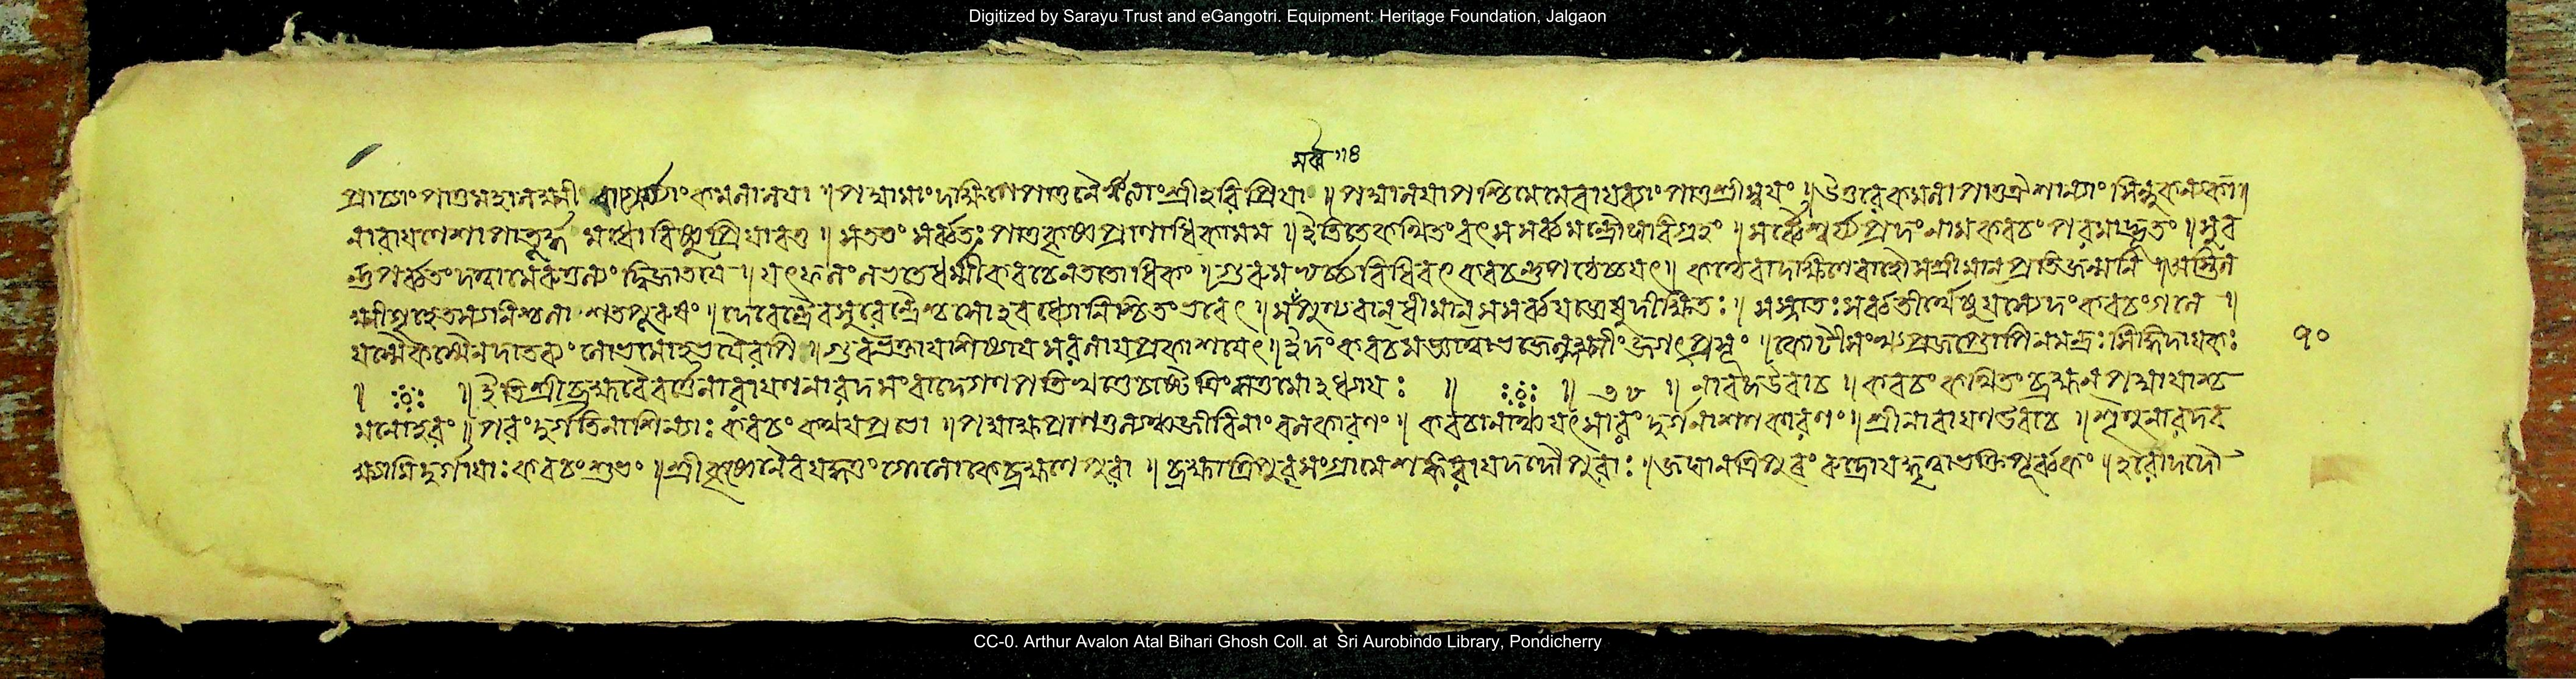 Digitized by Sarayu Trust and eGangotri. Equipment: Heritage Foundation, Jalgaon
সর্ব্ব ॥৪
প্রাচ্যাং পাতু মহালক্ষ্মী কমলালয়া ॥ পদ্মা মাং দক্ষিণে পাতু নৈর্ঋত্যাং শ্রীহরিপ্রিয়া ॥ পদ্মালয়া পশ্চিমে মে বায়ব্যাং পাতু শ্রী স্বয়ং ॥ উত্তরে কমলা পাতু ঐশান্যাং সিন্ধুকন্যকা ॥
নারায়ণেশা পাতূর্দ্ধ মধো বিষ্ণুপ্রিয়াবতু ॥ সততং সর্ব্বতঃ পাতু কৃষ্ণপ্রাণাধিকা মম ॥ ইতি তে কথিতং বৎস সর্ব্বমন্ত্রৌঘবিগ্রহং ॥ সর্ব্বৈশ্বর্য্যপ্রদং নাম কবচং পরমাদ্ভুতং ॥ সুব
পর্ব্বতং দত্বা মেরুতুল্যং দ্বিজাতয়ে ॥ যৎফলং লভতে ধর্ম্মী কবচেন ততোধিকং ॥ গুরুমভ্যর্চ্চ্য বিধিবৎ কবচং ॥ কণ্ঠে বা দক্ষিণে বাহৌ স শ্রীমান প্রতিজন্মনি ॥ অস্তি ল
ক্ষ্মী গৃহে তস্য নিশ্চলা শতপুরুষং ॥ দেবেন্দ্রৈ সুরেন্দ্রৈশ্চ সোহবধ্যো নিশ্চিতং ভবেৎ ॥ স পুণ্যবান ধীমান সর্ব্বযজ্ঞেষু দীক্ষিতঃ ॥ স স্নাতঃ সর্ব্বতীর্থেষু যস্যেদং কবচং গলে ॥
যস্মৈ কস্মৈ ন দাতব্যং লোভমোহভয়ৈরপি ॥ গুরুভক্তায় শিষ্যায় প্রকাশয়েৎ ॥ ইদং কবচমজ্ঞাত্বা ভজেল্লক্ষ্মীং জগৎপ্রসূং ॥ সিদ্ধিদায়কঃ
১০
॥ ॥ ইতি শ্রীব্রহ্মবৈবর্ত্তে নারায়ণনারদসংবাদে গণপতিখণ্ডে ॥ ॥ ৩৮ ॥ নারদ উবাচ ॥ কবচং কথিতং ব্রহ্মন পদ্মায়াশ্চ
মনোহরং ॥ পরং দুর্গতিনাশিন্যাঃ কবচং কথয় প্রভো ॥ পদ্মাক্ষ জীবিনাং বলকারণং ॥ কবচানাঞ্চ যৎসারং দুর্গনাশনকারণং ॥ শ্রীনারায়ণ উবাচ ॥ শৃণু নারদ ব
ক্ষ্যামি দুর্গায়াঃ কবচং শুভং ॥ শ্রীকৃষ্ণেনৈব যদ্দত্তং গোলোকে ব্রহ্মণে পুরা ॥ ব্রহ্মা ত্রিপুরসংগ্রামে শঙ্করায় দদৌ পুরাঃ ॥ জঘান ত্রিপুরং রুদ্রো যদ্ধৃত্বা ভক্তিপূর্ব্বকং ॥ হরো দদৌ
CC-0. Arthur Avalon Atal Bihari Ghosh Coll. at Sri Aurobindo Library, Pondicherry